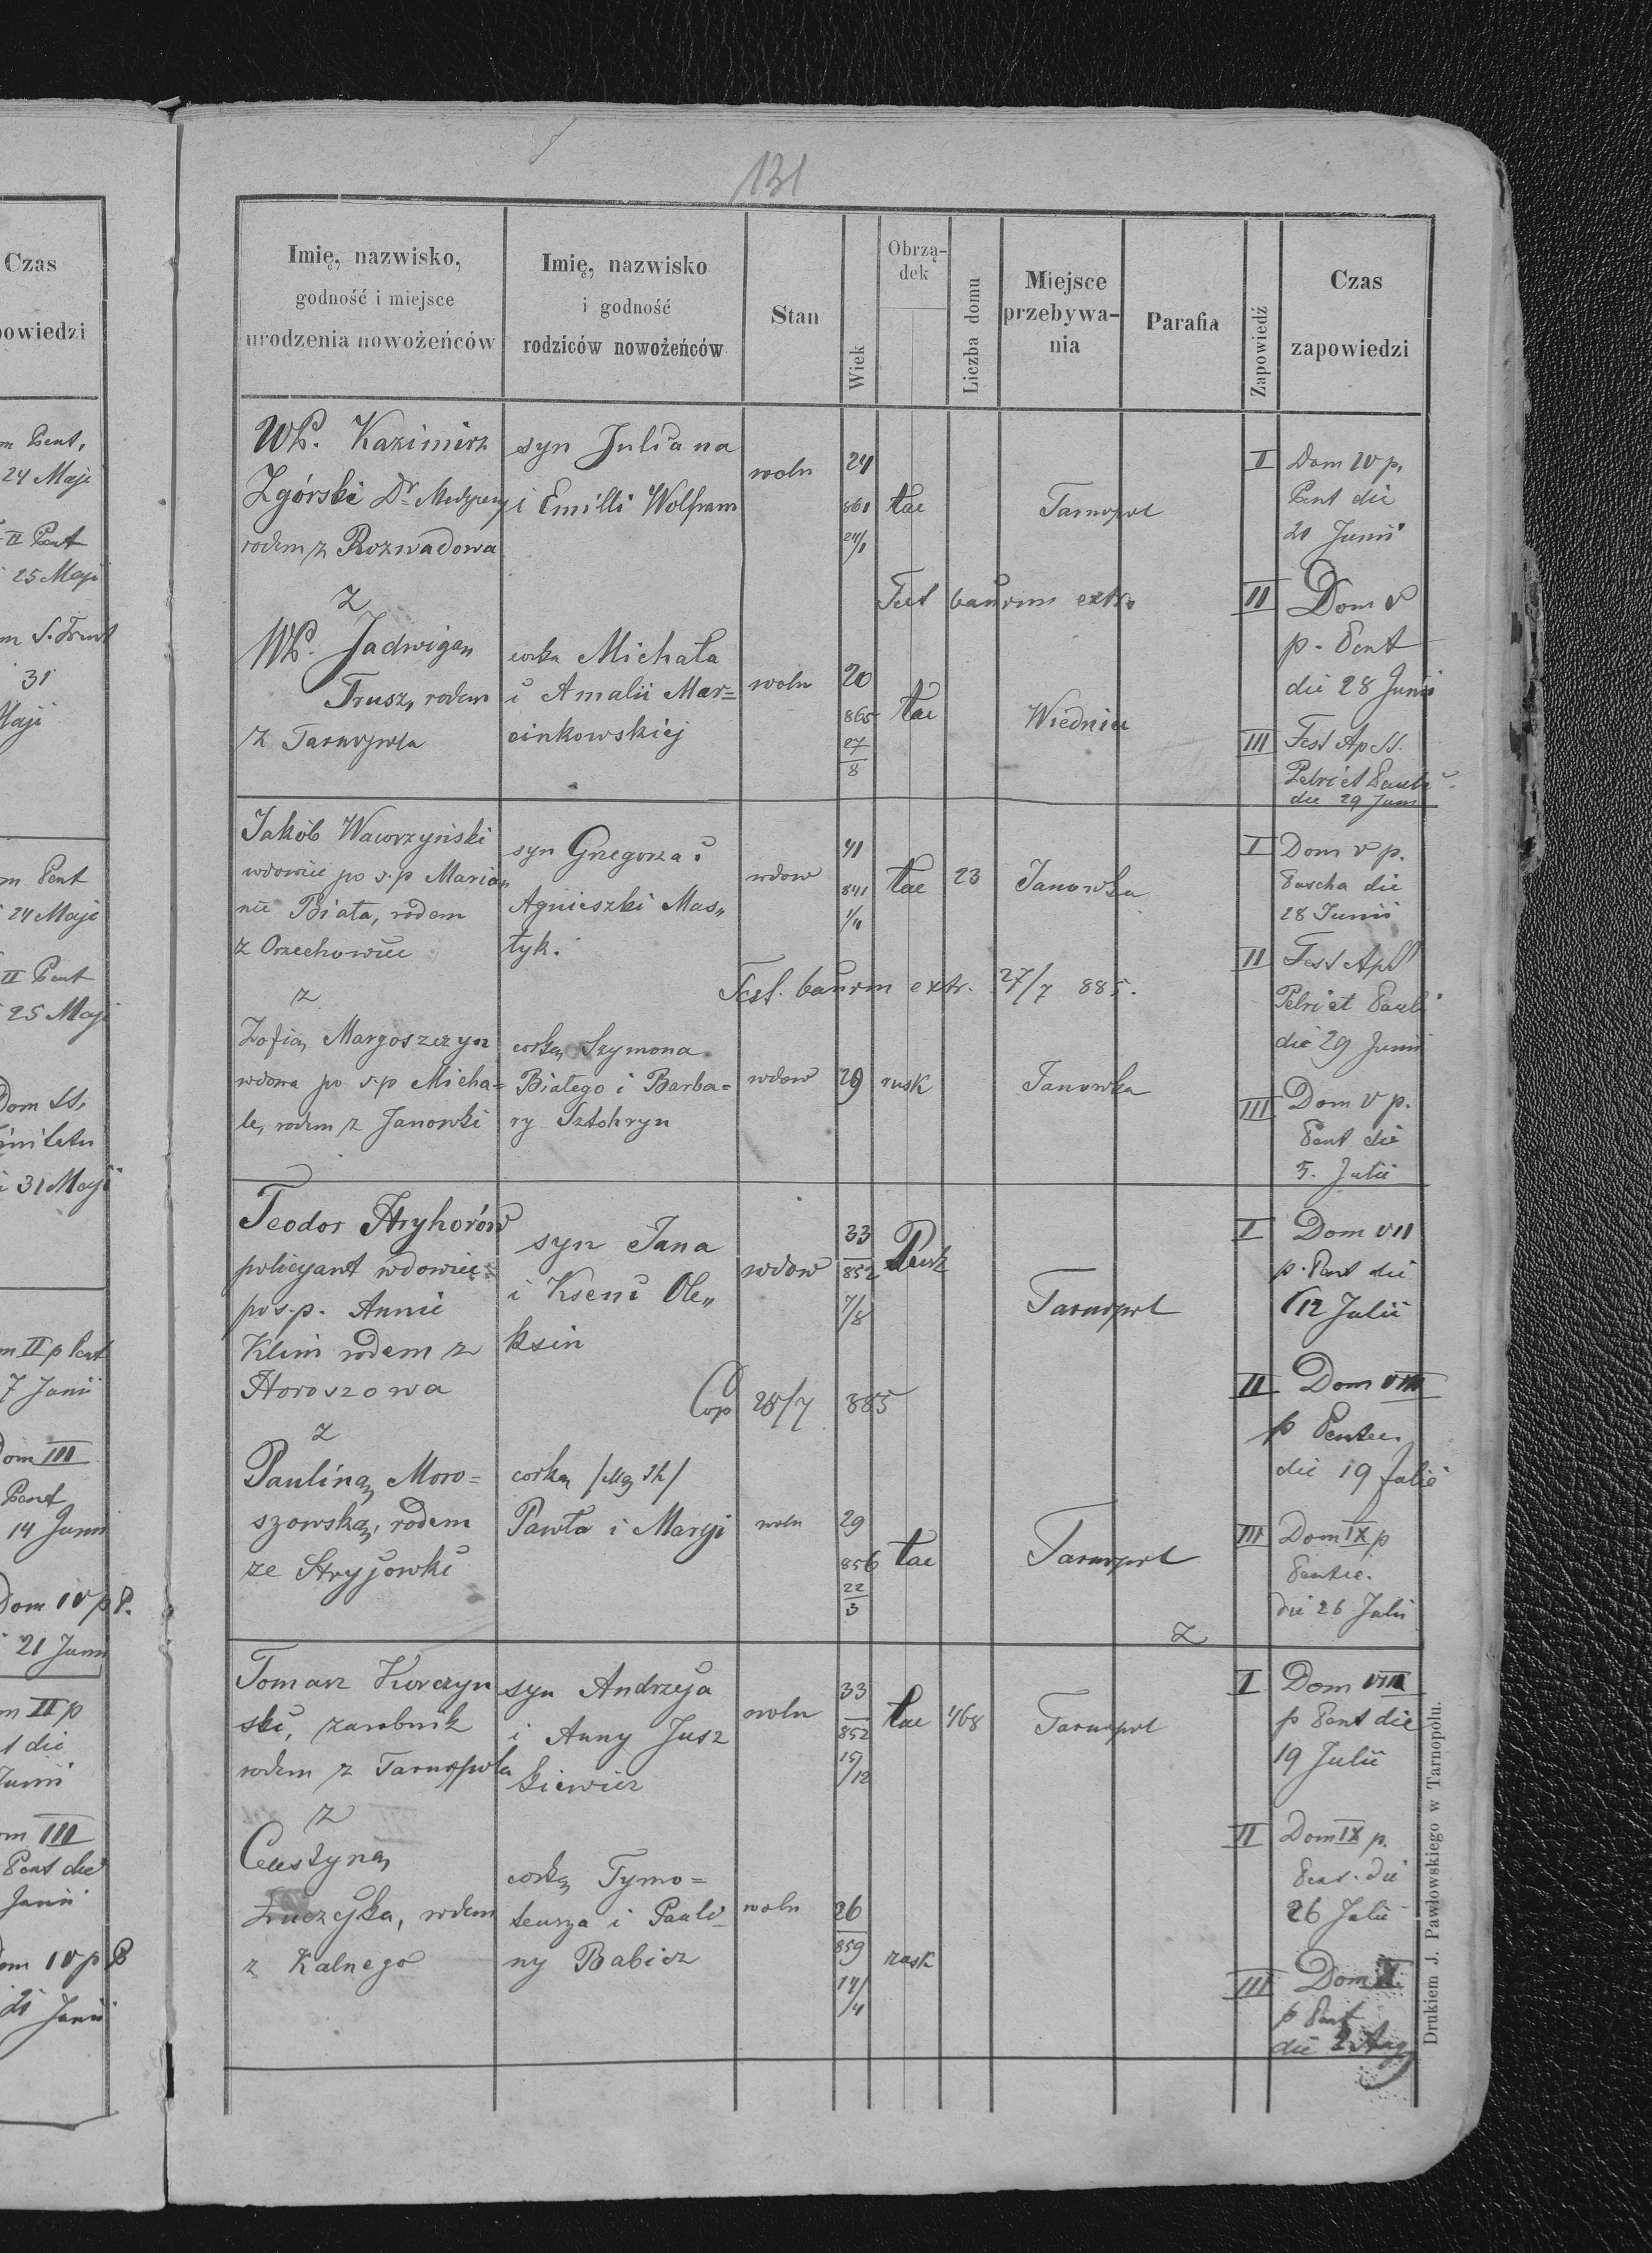 Czas
powiedzi
m Pent,
24 Maji
II Pent
25 Maji
31
Maji
m Pent
24 Maji
II Pent
25 Maji
Dom SS.
31 Maji
m II p Pent
7 Junii
Dom III
Pent
14 Junii
Dom IV p P.
21 Junii
m II p
t die
Junii
om III
Pent die
Junii
om IV p P
21 Junii
131
Imię, nazwisko,
godność i miejsce
urodzenia nowożeńców
Imię, nazwisko
i godność
rodziców nowożeńców
Stan
Wiek
Obrzą-
dek
Liczba domu
Miejsce
przebywa-
nia
Parafia
Zapowiedź
Czas
zapowiedzi
WP. Kazimirz
Zgórski Dr. Medyceny
rodem z Rozwadowa
syn Juliana
i Emilli Wolfram
woln
24
861
24/1
łac
Tarnopol
I
Dom IV p.
Pent die
21 Junii
z
Test bannrm extr.
II
Dom V
p. Pent
die 28 Junii
WP. Jadwigą
Trusz, rodem
z Tarnopola
corka Michała
i Amalii Mar=
cinkowskiej
woln
20
865
27
8
łac
Wiedniu
III
Fest Ap SS.
Petri et Pauli
die 29 Junii
Jakób Wawrzyński
wdowiec po s.p Marian
nie Biała, rodem
z Orzechowiec
syn Grzegorza i
Agnieszki Mas„
tyk.
wdow
41
841
1/11
łac
23
Janowka
I
Dom V p.
Pascha die
28 Junii
z
Test. bannrm extr. 27/7 885.
II
Fest Ap SS
Petri et Pauli
die 29 Junii
Zofią Margoszczyn
wdowa po s.p Micha=
le, rodem z Janowki
corką Szymona
Białego i Barba=
ry Sztohryn
wdow
29
rusk
Janowka
III
Dom V p.
Pent die
5. Julii
Teodor Hryhorów
policyant wdowiec
po s.p. Annie
Klim rodem z
Horoszowa
syn Jana
i Kseni Ole„
ksin
wdow
33
852
7/8
Rusk
Tarnopol
I
Dom VII
p. Pent die
12 Julii
Cop 28/7 885
II
Dom VIII
p Pentec.
die 19 Julii
z
Pauliną Moro=
szowską, rodem
ze Stryjówki
corką
Pawła i Maryi
woln
29
856
22
3
łac
Tarnopol
III
Dom IX p
Pentec.
die 26 Julii
z
Tomasz Korczyn
ski, zarobnik
rodem z Tarnopola
syn Andrzeja
i Anny Jusz
kiewicz
woln
33
852
19/12
łac
468
Tarnopol
I
Dom VIII
p Pent die
19 Julii
z
Celestyną
Łuczejka, rodem
z Kalnego
corką Tymo=
teusza i Pauli=
ny Babicz
woln
26
859
14/4
rusk
II
Dom IX p.
Pent. die
26 Julii
III
Dom X
p Pent
die 2 Aug
Drukiem J. Pawłowskiego w Tarnopolu.